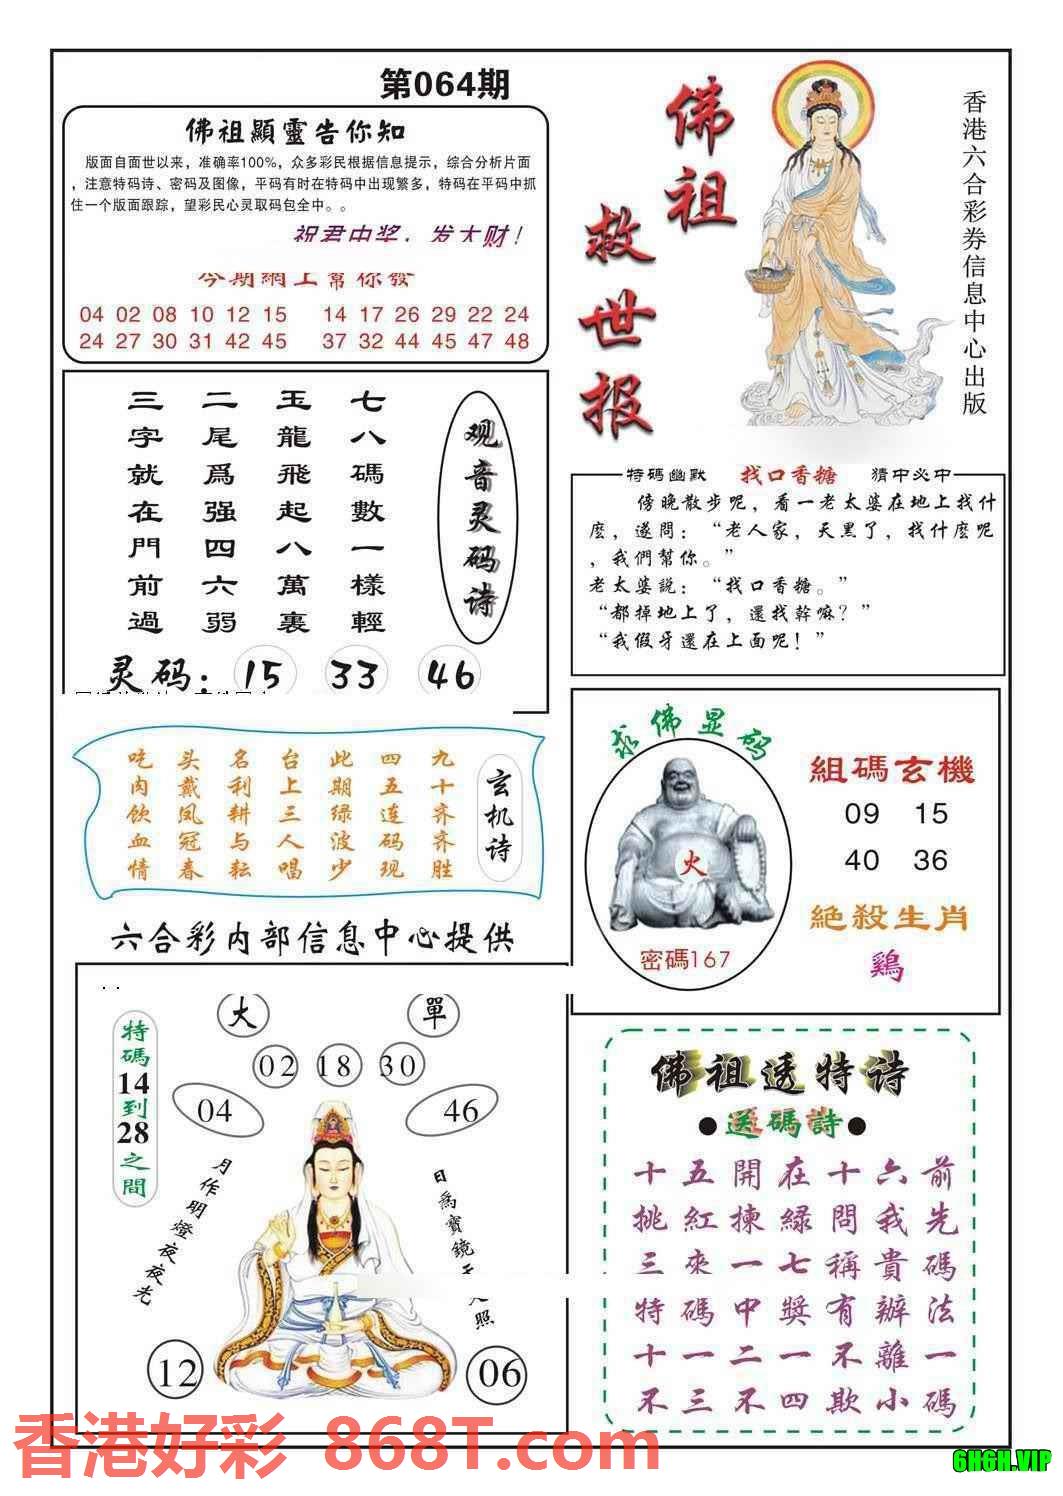 第064期
佛祖顯靈告你知
版面自面世以来，准确率100%，众多彩民根据信息提示，综合分析片面
，注意特码诗、密码及图像，平码有时在特码中出现繁多，特码在平码中抓
住一个版面跟踪，望彩民心灵取码包全中。。
祝君中奖，发大财！
今期網上幫你發
04 02 08 10 12 15 14 17 26 29 22 24
24 27 30 31 42 45 37 32 44 45 47 48
佛祖
救世报
香港六合彩券信息中心出版
七八碼數一樣輕
玉龍飛起八萬裏
二尾爲强四六弱
三字就在門前過
观音灵码诗
灵码：15 33 46
特碼幽默 找口香糖 猜中必中
傍晚散步呢，看一老太婆在地上找什
麽，遂問：“老人家，天黑了，找什麽呢
，我們幫你。”
老太婆説：“找口香糖。”
“都掉地上了，還找幹嘛？”
“我假牙還在上面呢！”
玄机诗
九十齐齐胜
四五连码现
此期绿波少
台上三人唱
名利耕与耘
头戴凤冠春
吃肉饮血情
求佛显码
火
密碼167
組碼玄機
09 15
40 36
絕殺生肖
鷄
六合彩内部信息中心提供
大 單
02 18 30
04 46
特碼14到28之間
月作明燈夜夜光
日爲寶鏡
照
12 06
佛祖透特诗
●送碼詩●
十五開在十六前
挑紅揀緑問我先
三來一七稱貴碼
特碼中獎有辦法
十一二一不離一
不三不四欺小碼
香港好彩 868T.com
6H6H.VIP